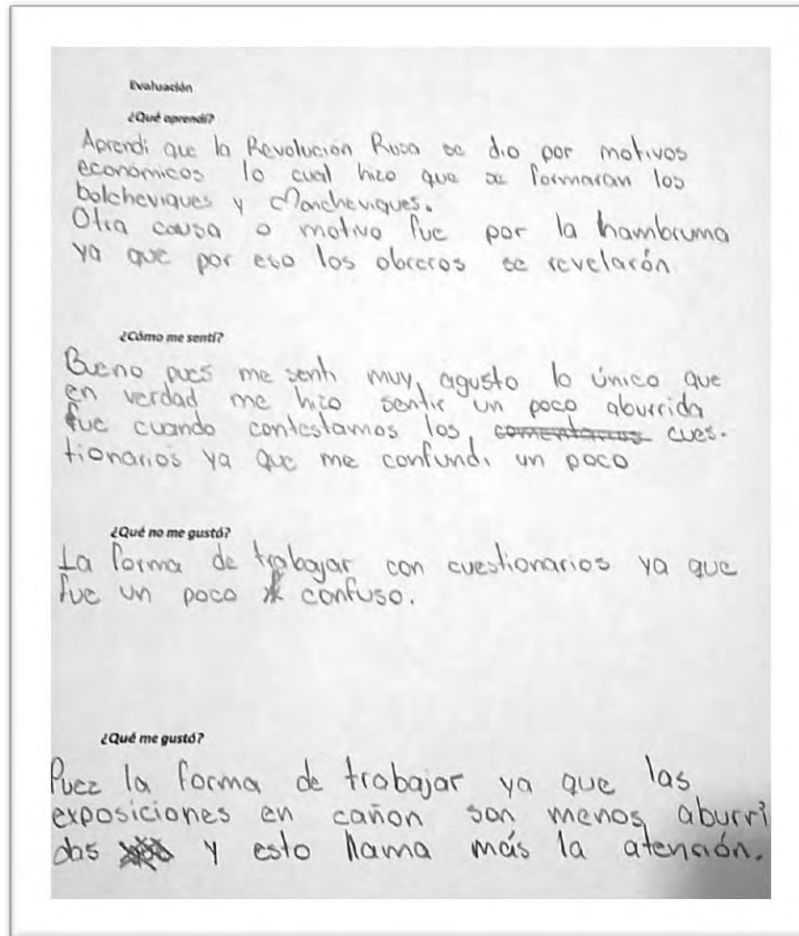 Evaluación
¿Qué aprendí?
Aprendi que la Revolución Rusa se dio por motivos
economicos lo cual hizo que se formaran los
bolcheviques y Mancheviques.
Otra causa o motivo fue por la hambruma
ya que por eso los obreros se revelarón
¿Cómo me sentí?
Bueno pues me senti muy agusto lo único que
en verdad me hizo sentir un poco aburrida
fue cuando contestamos los comentarios cues-
tionarios ya que me confundi un poco
¿Qué no me gustó?
La forma de trabajar con cuestionarios ya que
fue un poco confuso.
¿Qué me gustó?
Puez la forma de trabajar ya que las
exposiciones en cañon son menos aburri
das y esto llama más la atención.